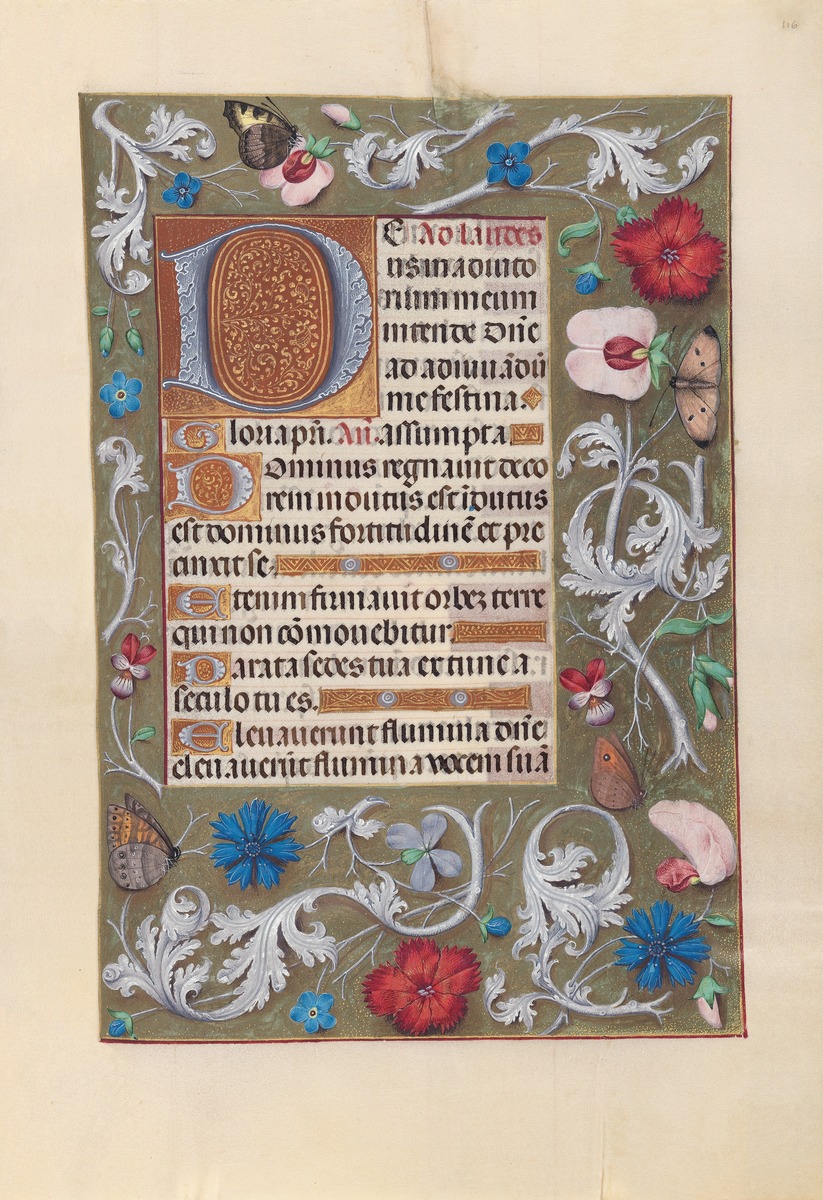 116
DEus Ad laudes
us in adiuto
rium meum
intende Dn̄e
ad adiuuādū
me festina.
Gloria pr̄i. Añ. assumpta
Dominus regnauit deco
rem indutus est ĩdutus
est dominus fortitudinē et pre
cinxit se.
Etenim firmauit orbez terre
qui non cōmouebitur
Parata sedes tua ex tunc a
seculo tu es.
Eleuauerunt flumina dn̄e
eleuauerūt flumina vocem suā